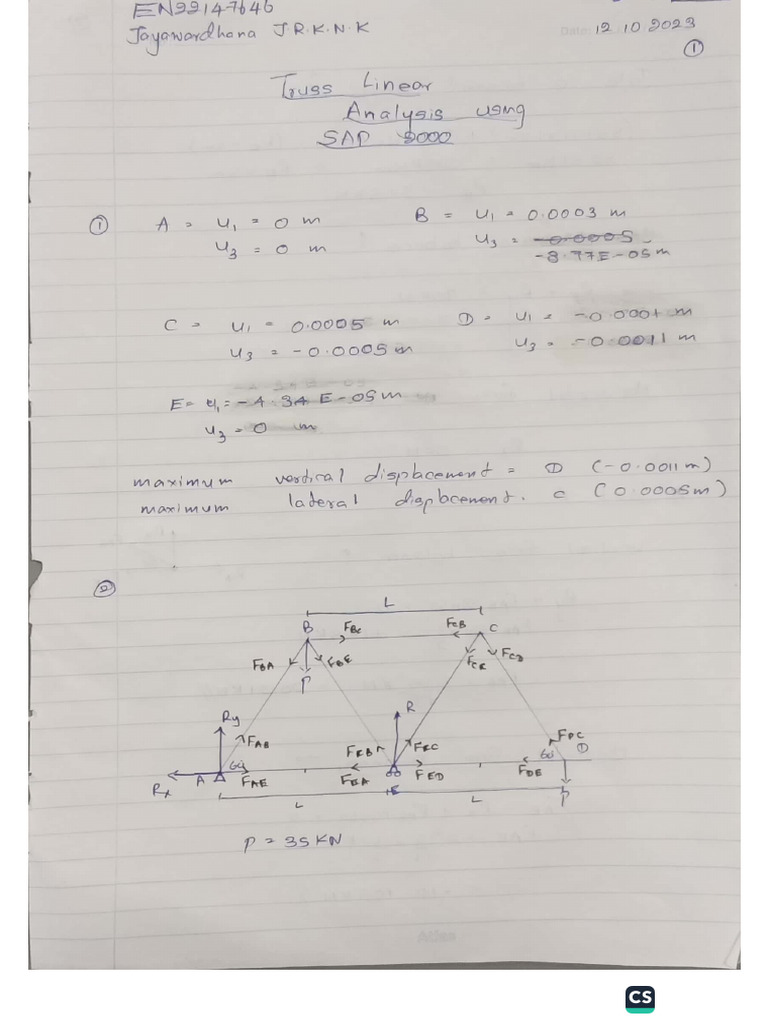 EN22147646
Jayawardhana J.R.K.N.K
12.10.2023
①
Truss Linear
Analysis using
SAP 2000
① A = U₁ = 0 m B = U₁ = 0.0003 m
U₃ = 0 m U₃ = -0.0005
-8.77E-05 m
C = U₁ = 0.0005 m D = U₁ = -0.0001 m
U₃ = -0.0005 m U₃ = -0.0011 m
E = U₁ = -4.34 E-05 m
U₃ = 0 m
maximum vertical displacement = D (-0.0011m)
maximum lateral displacement. C (0.0005m)
②
L
B FBC FCB C
FBA FBE FCE FCD
P
Ry R
FAB FEB FEC FDC D
60 60
Rx A FAE FEA FED FDE
E P
L L
P = 35 KN
CS